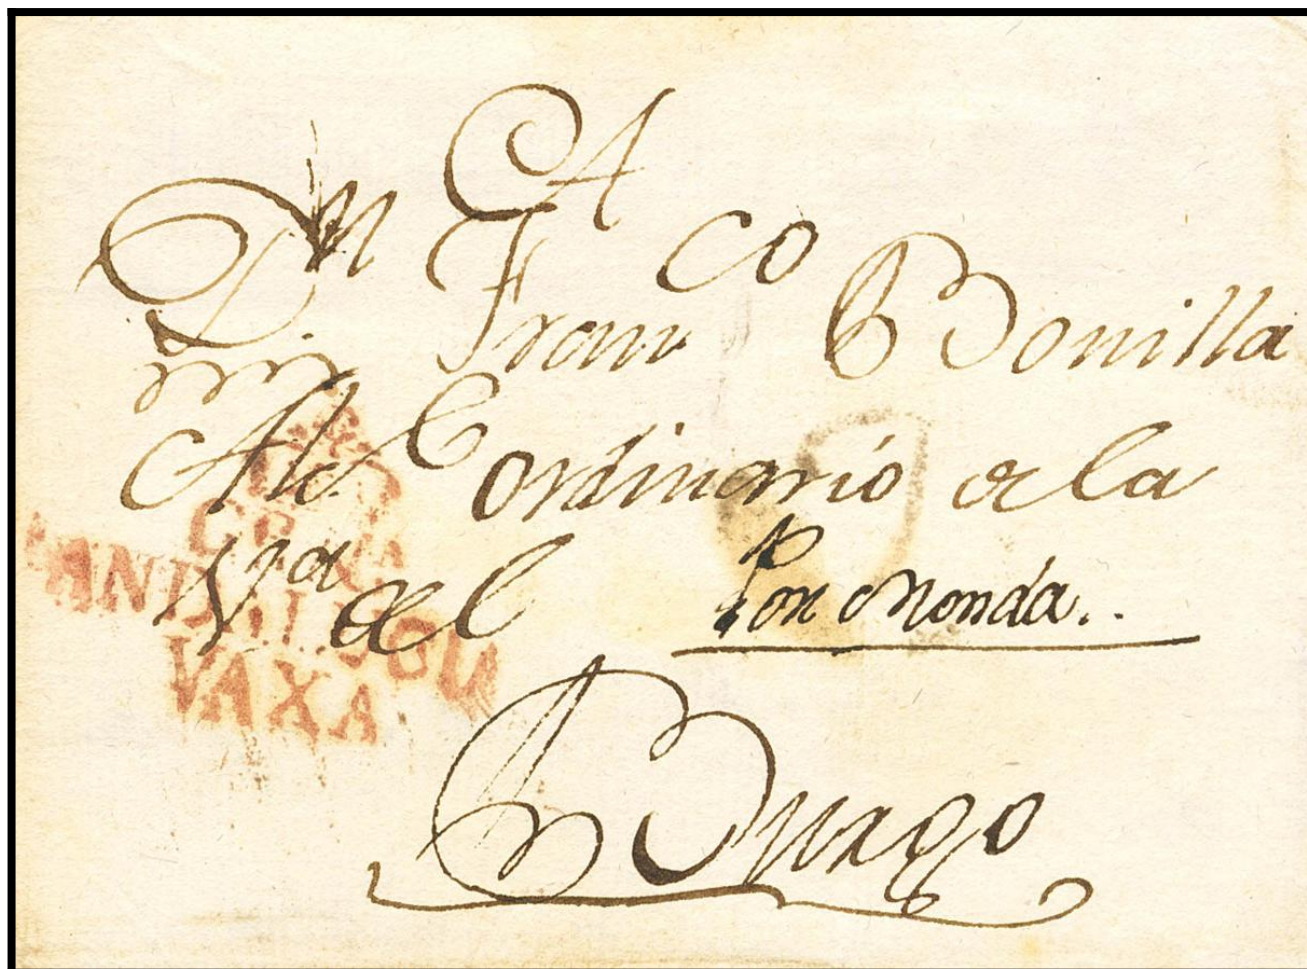 A
Dn Franco Bonilla
Alce Ordinario de la
Va del Por Monda.
Burgo
VAXA